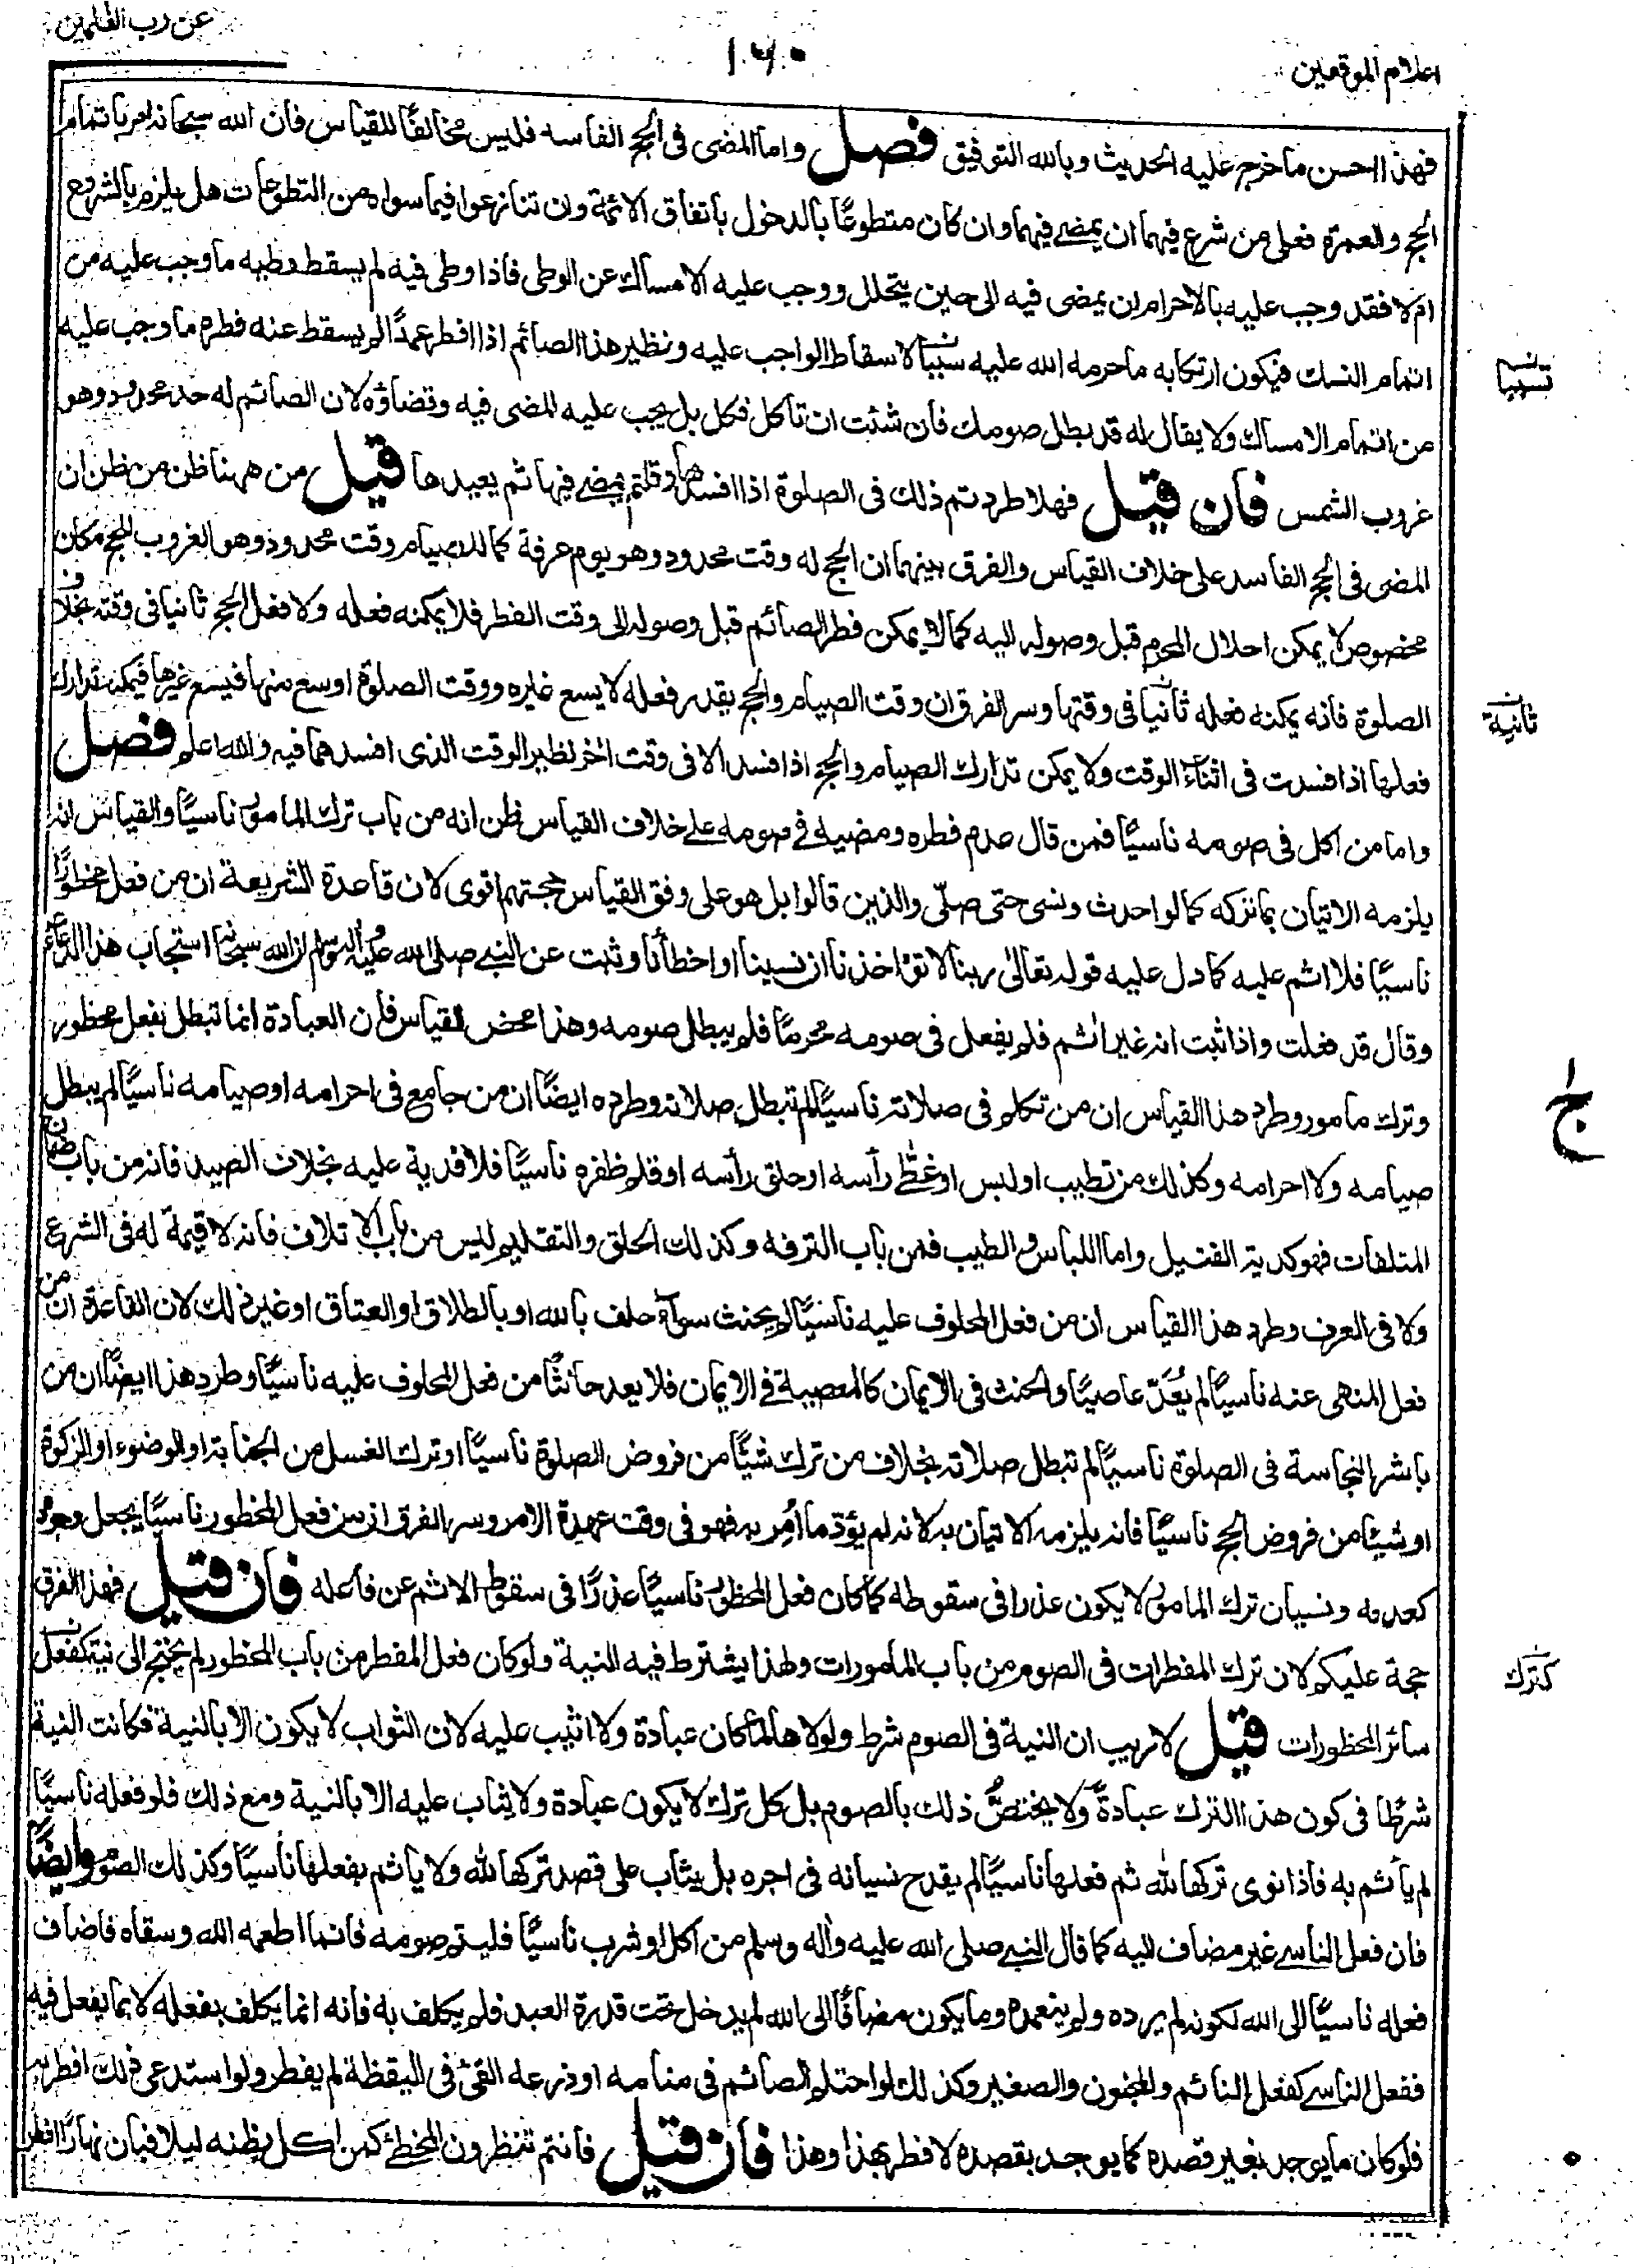 اعلام الموقعين
١٦٠
عن رب العلمين
فهذا احسن ما خرج عليه الحديث وبالله التوفيق فصل واما المضى فى الحج الفاسد فليس مخالفًا للقياس فان الله سبحانه امر باتمام
الحج والعمرة فعلى من شرع فيهما ان يمضے فيهما وان كان متطوعًا بالدخول باتفاق الائمة وان تنازعوا فيما سواه من التطوعات هل يلزم بالشروع
ام لا فقد وجب عليه بالاحرام ان يمضى فيه الى حين يتحلل ووجب عليه الامساك عن الوطى فاذا وطى فيه لم يسقط وطيه ما وجب عليه من
اتمام النسك فيكون ارتكابه ما حرمه الله عليه سببًا لاسقاط الواجب عليه ونظير هذا الصائم اذا افطر عمدًا لم يسقط عنه فطره ما وجب عليه
تسبيبا
من اتمام الامساك ولا يقال له قد بطل صومك فان شئت ان تأكل فكل بل يجب عليه المضى فيه وقضاؤه لان الصائم له حد محدود وهو
غروب الشمس فان قيل فهلا طردتم ذلك فى الصلوة اذا افسدها وقلتم يمضے فيها ثم يعيدها قيل من ههنا ظن من ظن ان
المضى فى الحج الفاسد على خلاف القياس والفرق بينهما ان الحج له وقت محدود وهو يوم عرفة كما للصيام وقت محدود وهو الغروب للحج مكان
مخصوص لا يمكن احلال المحرم قبل وصوله اليه كما لا يمكن فطر الصائم قبل وصوله الى وقت الفطر فلا يمكنه فعله ولا فعل الحج ثانيا فى وقته بخلاف
الصلوة فانه يمكنه فعله ثانيا فى وقتها وسر الفرق ان وقت الصيام والحج بقدر فعله لا يسع غيره ووقت الصلوة اوسع منها فيسع غيرها فيمكنه تدارك
ثانية
فعلها اذا فسدت فى اثناء الوقت ولا يمكن تدارك الصيام والحج اذا فسد الا فى وقت اٰخر نظير الوقت الذى افسدهما فيه والله اعلم فصل
واما من اكل فى صومه ناسيًا فمن قال عدم فطره ومضيه فے صومه علے خلاف القياس ظن انه من باب ترك المامور ناسيًا والقياس انه
يلزمه الاتيان بما تركه كما لو احدث ونسى حتى صلّى والذين قالوا بل هو على وفق القياس حجتهم اقوى لان قاعدة الشريعة ان من فعل محظورًا
ناسيًا فلا اثم عليه كما دل عليه قوله تعالىٰ ربنا لا تؤاخذنا ان نسينا او اخطأنا وثبت عن النبے صلى الله عليه واٰله وسلم ان الله سبحانه استجاب هذا الدعاء
وقال قد فعلت واذا ثبت انه غير اٰثم فلم يفعل فى صومه محرمًا فلم يبطل صومه وهذا محض القياس فان العبادة انما تبطل بفعل محظور
وترك مامور وطرد هذا القياس ان من تكلم فى صلاته ناسيًا لم تبطل صلاته وطرده ايضًا ان من جامع فى احرامه او صيامه ناسيًا لم يبطل
صيامه ولا احرامه وكذلك من تطيب او لبس او غطّے رأسه او حلق رأسه او قلم ظفره ناسيًا فلا فدية عليه بخلاف الصيد فانه من باب ضمان
المتلفات فهو كدية القتيل واما اللباس والطيب فمن باب الترفه وكذلك الحلق والتقليم ليس من باب الاتلاف فانه لا قيمة له فى الشرع
ولا فى العرف وطرد هذا القياس ان من فعل المحلوف عليه ناسيًا لم يحنث سواء حلف بالله او بالطلاق او العتاق او غير ذلك لان القاعدة ان من
فعل المنهى عنه ناسيًا لم يُعَدّ عاصيًا والحنث فى الايمان كالمعصية فے الايمان فلا يعد حانثًا من فعل المحلوف عليه ناسيًا وطرد هذا ايضًا ان من
باشر النجاسة فى الصلوة ناسيًا لم تبطل صلاته بخلاف من ترك شيًّا من فروض الصلوة ناسيًا او ترك الغسل من الجنابة او الوضوء او الزكوة
او شيئا من فروض الحج ناسيًا فانه يلزمه الاتيان به لانه لم يؤد ما اُمِر به فهو فى وقت عهدة الامر وسر الفرق ان من فعل المحظور ناسيًا يجعل وجوده
كعدمه ونسيان ترك المامور لا يكون عذرا فى سقوطه كما كان فعل المحظور ناسيًا عذرًا فى سقوط الاثم عن فاعله فان قيل فهذا الفرق
حجة عليكم لان ترك المفطرات فى الصوم من باب المأمورات ولهذا يشترط فيه النية ولو كان فعل المفطر من باب المحظور لم يحتج الى نية كفعل
كترك
سائر المحظورات قيل لا ريب ان النية فى الصوم شرط ولولاها لما كان عبادة ولا اثيب عليه لان الثواب لا يكون الا بالنية فكانت النية
شرطًا فى كون هذا الترك عبادةً ولا يختصُّ ذلك بالصوم بل كل ترك لا يكون عبادة ولا يثاب عليه الا بالنية ومع ذلك فلو فعله ناسيًا
لم يأثم به فاذا نوى تركها لله ثم فعلها ناسيًا لم يقدح نسيانه فى اجره بل يثاب على قصد تركها لله ولا ياثم بفعلها ناسيًا وكذلك الصوم وايضًا
فان فعل الناسے غير مضاف اليه كما قال النبے صلى الله عليه واٰله وسلم من اكل او شرب ناسيًا فليتم صومه فانما اطعمه الله وسقاه فاضاف
فعله ناسيًا الى الله لكونه لم يرده ولم يتعمده وما يكون مضافًا الى الله لم يدخل تحت قدرة العبد فلم يكلف به فانه انما يكلف بفعله لا بما يفعل فيه
ففعل الناسے كفعل النائم والمجنون والصغير وكذلك لو احتلم الصائم فى منامه او ذرعه القئ فى اليقظة لم يفطر ولو استدعى ذلك افطر به
فلو كان ما يوجد بغير قصده كما يوجد بقصده لافطر بهذا وهذا فان قيل فانتم تفطرون المخطئ كمن اكل يظنه ليلا فبان نهارًا افطر